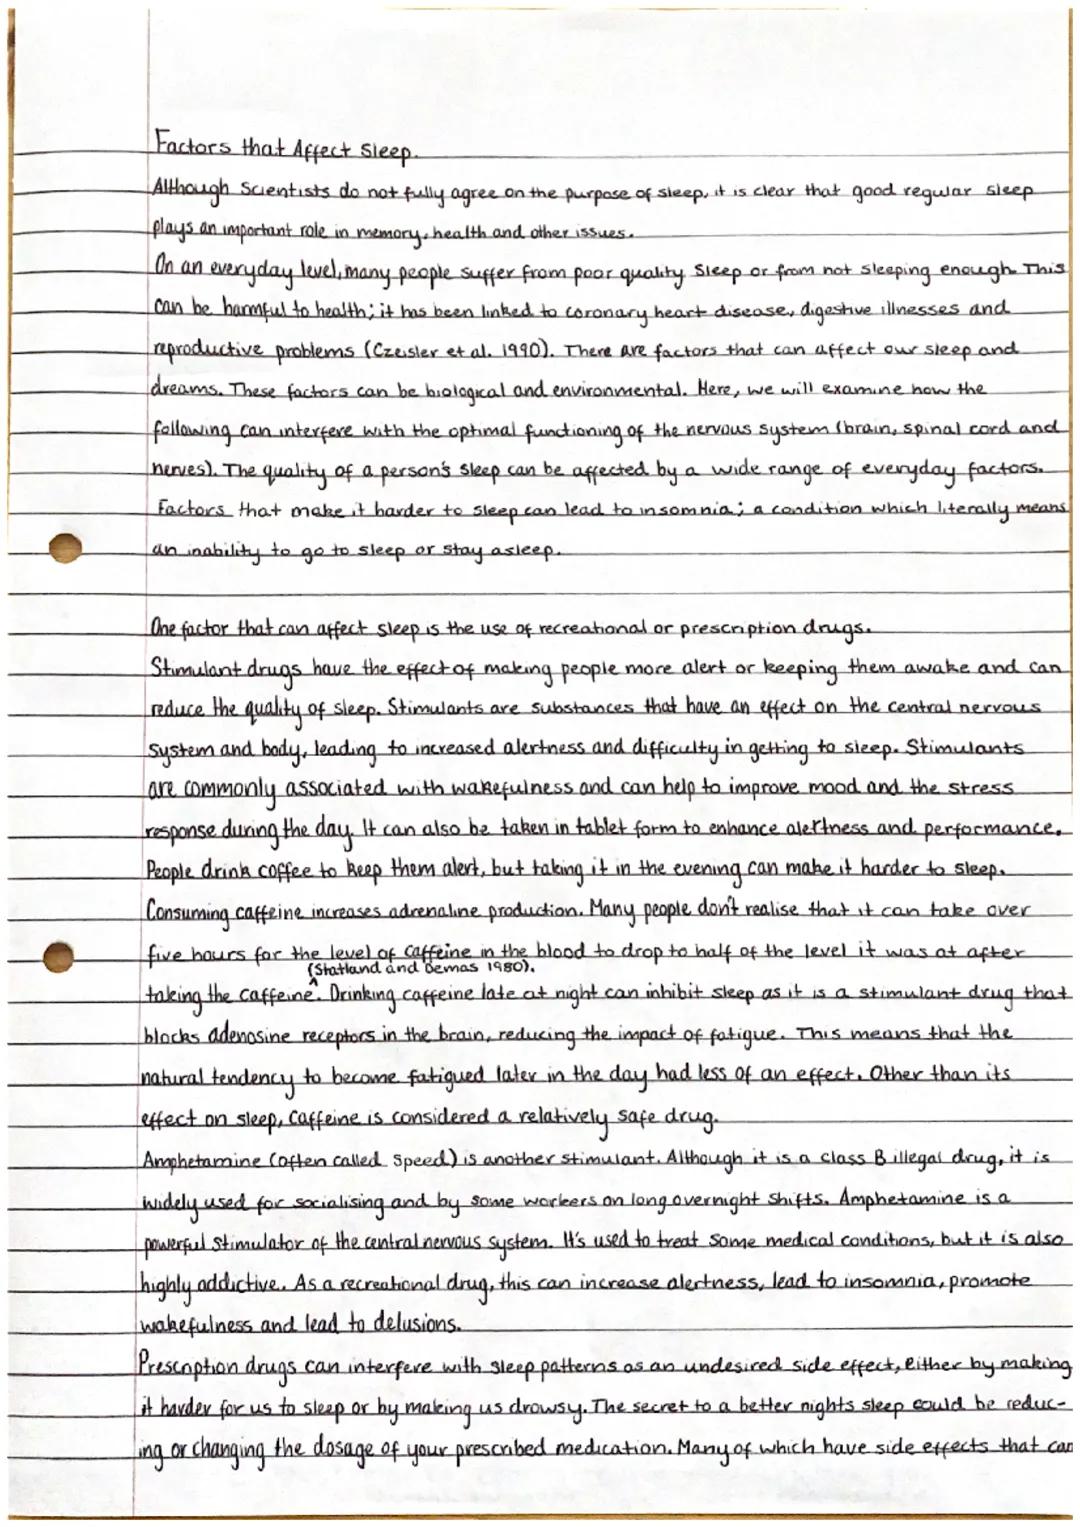 Factors that Affect Sleep.
Although Scientists do not fully agree on the purpose of sleep, it is clear that good regular sleep
plays an important role in memory, health and other issues.
On an everyday level, many people suffer from poor quality sleep or from not sleeping enough. This
can be harmful to health; it has been linked to coronary heart disease, digestive illnesses and
reproductive problems (Czeisler et al. 1990). There are factors that can affect our sleep and
dreams. These factors can be biological and environmental. Here, we will examine how the
following can interfere with the optimal functioning of the nervous system (brain, spinal cord and
nerves). The quality of a person's sleep can be affected by a wide range of everyday factors.
Factors that make it harder to sleep can lead to insomnia; a condition which literally means
an inability to go to sleep or stay asleep.
One factor that can affect sleep is the use of recreational or prescription drugs.
Stimulant drugs have the effect of making people more alert or keeping them awake and can
reduce the quality of sleep. Stimulants are substances that have an effect on the central nervous
system and body, leading to increased alertness and difficulty in getting to sleep. Stimulants
are commonly associated with wakefulness and can help to improve mood and the stress
response during the day. It can also be taken in tablet form to enhance alertness and performance.
People drink coffee to keep them alert, but taking it in the evening can make it harder to sleep.
Consuming caffeine increases adrenaline production. Many people don't realise that it can take over
five hours for the level of caffeine in the blood to drop to half of the level it was at after
(Statland and Demas 1980).
taking the caffeine^. Drinking caffeine late at night can inhibit sleep as it is a stimulant drug that
blocks adenosine receptors in the brain, reducing the impact of fatigue. This means that the
natural tendency to become fatigued later in the day had less of an effect. Other than its
effect on sleep, caffeine is considered a relatively safe drug.
Amphetamine (often called Speed) is another stimulant. Although it is a class B illegal drug, it is
widely used for socialising and by some workers on long overnight shifts. Amphetamine is a
powerful stimulator of the central nervous system. It's used to treat some medical conditions, but it is also
highly addictive. As a recreational drug, this can increase alertness, lead to insomnia, promote
wakefulness and lead to delusions.
Prescription drugs can interfere with sleep patterns as an undesired side effect, either by making
it harder for us to sleep or by making us drowsy. The secret to a better nights sleep could be reduc-
ing or changing the dosage of your prescribed medication. Many of which have side effects that can